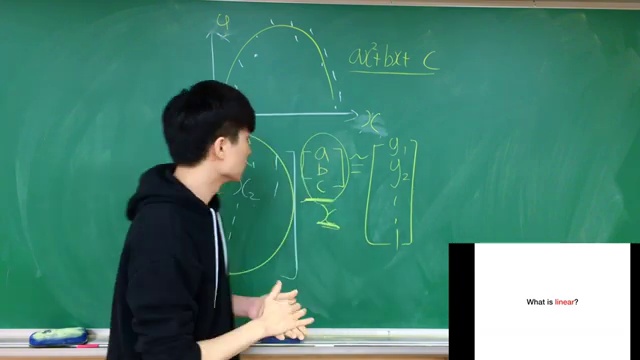 y
ax²+bx+ c
x
a
b
c
x₂
≈
y₁
y₂
x
What is linear?